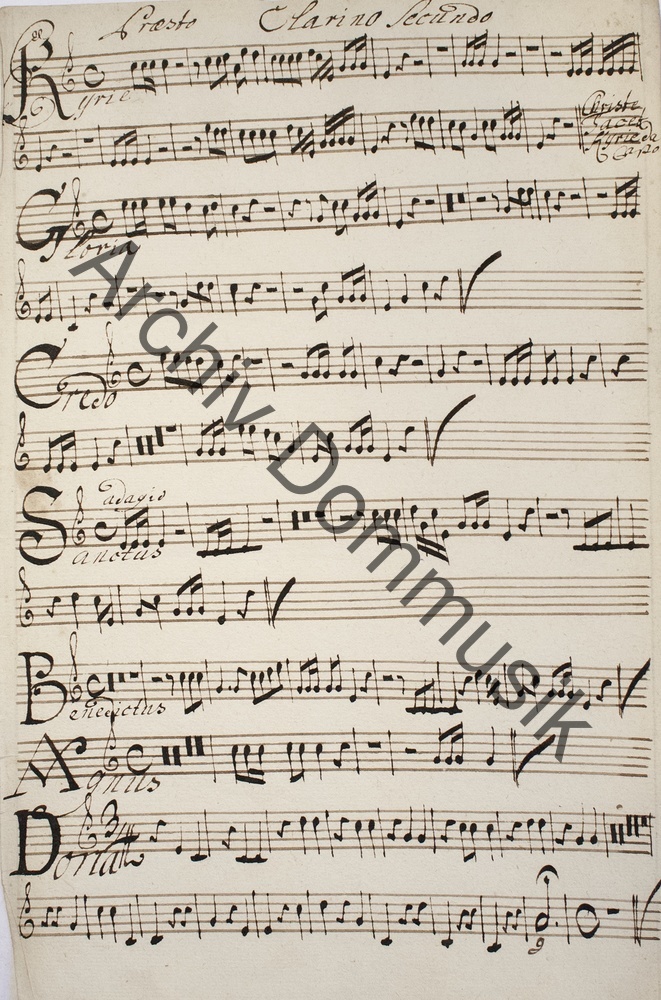 Præsto Clarino Secundo
Kyrie
Christe
Tacet
Kyrie da
Capo
Gloria
Credo
adagio
Sanctus
Benedictus
Agnus
Dona
Archiv Dommusik